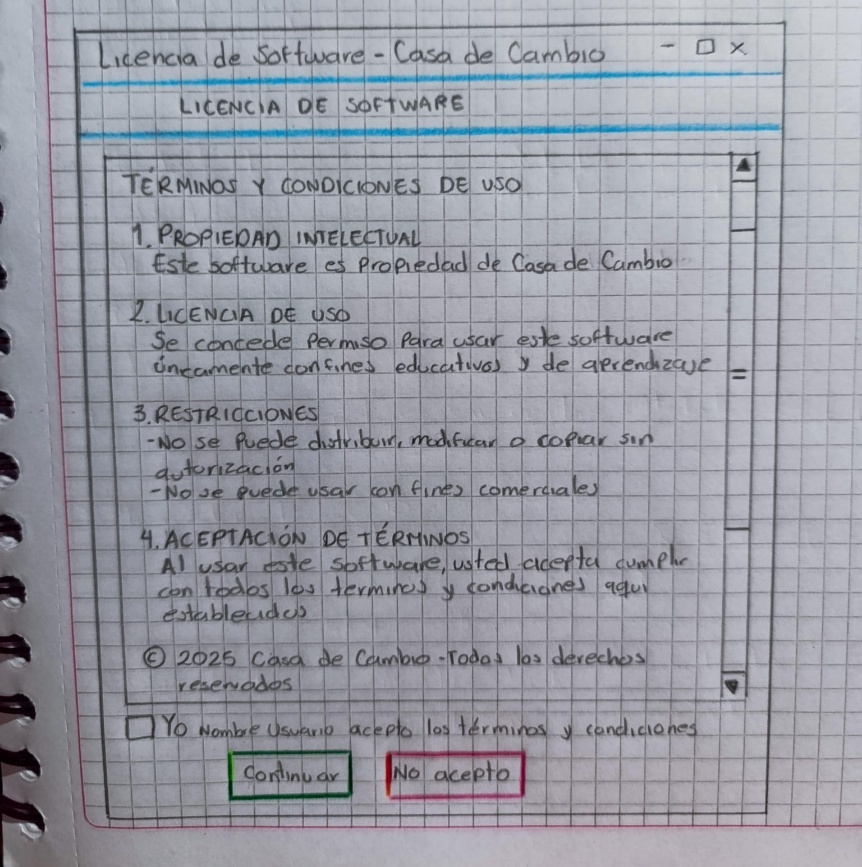 Licencia de Software - Casa de Cambio - □ x
LICENCIA DE SOFTWARE
TÉRMINOS Y CONDICIONES DE USO
1. PROPIEDAD INTELECTUAL
Este software es Propiedad de Casa de Cambio
2. LICENCIA DE USO
Se concede Permiso Para usar este software
únicamente con fines educativos y de aprendizaje
3. RESTRICCIONES
- No se Puede distribuir, modificar o copiar sin
autorización
- No se puede usar con fines comerciales
4. ACEPTACIÓN DE TÉRMINOS
Al usar este software, usted acepta cumplir
con todos los terminos y condiciones aqui
establecidos
© 2025 Casa de Cambio - Todos los derechos
reservados
Yo Nombre Usuario acepto los términos y condiciones
Continuar No acepto